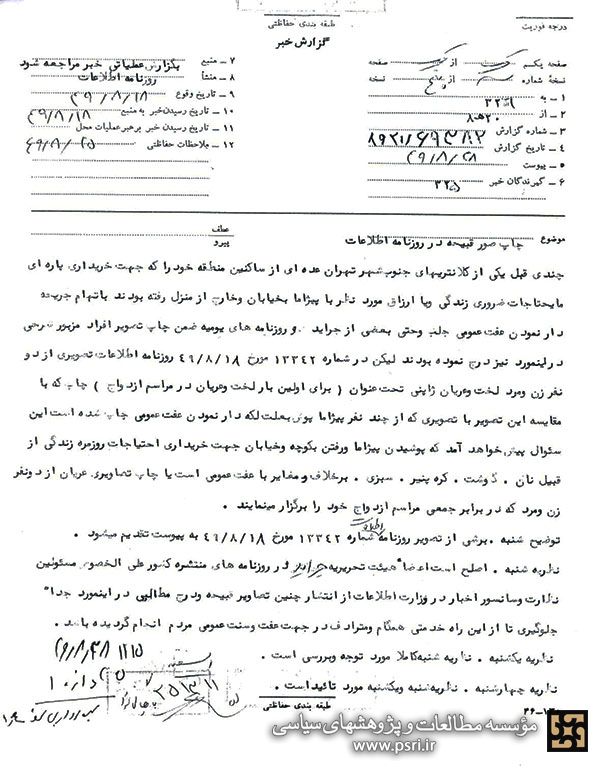 درجه فوریت
طبقه بندی حفاظتی
گزارش خبر
صفحه یکم از صفحه
نسخهٔ شماره از پنج نسخه
۱ ـ به ۳۲۲
۲ ـ از ۲۰ هـ ۸
۳ ـ شماره گزارش
۴ ـ تاریخ گزارش ۴۹/۸/۲۸
۵ ـ پیوست
۶ ـ گیرندگان خبر ۳۲۵
۷ ـ منبع بگزارش عملیاتی خبر مراجعه شود
۸ ـ منشأ روزنامه اطلاعات
۹ ـ تاریخ وقوع ۴۹/۸/۱۸
۱۰ ـ تاریخ رسیدن خبر به منبع ۴۹/۸/۱۸
۱۱ ـ تاریخ رسیدن خبر برهبر عملیات محل
۱۲ ـ ملاحظات حفاظتی ۴۹/۸/۲۵
موضوع چاپ صور قبیحه در روزنامه اطلاعات
عطف
پیرو
چندی قبل یکی از کلانتریهای جنوب شهر تهران عده ای از ساکنین منطقه خود را که جهت خریداری پاره ای
مایحتاجات ضروری زندگی ویا ارزاق مورد نظر با پیژاما بخیابان وخارج از منزل رفته بودند باتهام جریحه
دار نمودن عفت عمومی جلب وحتی بعضی از جراید و روزنامه های یومیه ضمن چاپ تصویر افراد مزبور شرحی
در اینمورد نیز درج نموده بودند لیکن در شماره ۱۳۳۴۲ مورخ ۴۹/۸/۱۸ روزنامه اطلاعات تصویری از دو
نفر زن ومرد لخت وعریان ژاپنی تحت عنوان ( برای اولین بار لخت وعریان در مراسم ازدواج ) چاپ که با
مقایسه این تصویر با تصویری که از چند نفر پیژاما پوش بعلت لکه دار نمودن عفت عمومی چاپ شده است این
سئوال پیش خواهد آمد که پوشیدن پیژاما ورفتن بکوچه وخیابان جهت خریداری احتیاجات روزمره زندگی از
قبیل نان . گوشت . کره پنیر . سبزی . برخلاف و مغایر با عفت عمومی است یا چاپ تصاویری عریان از دو نفر
زن ومرد که در برابر جمعی مراسم ازدواج خود را برگزار مینمایند .
توضیح شنبه . برشی از تصویر روزنامه اطلاعات شماره ۱۳۳۴۲ مورخ ۴۹/۸/۱۸ به پیوست تقدیم میشود .
نظریه شنبه . اصلح است اعضا٫ هیئت تحریریه جراید در روزنامه های منتشره کشور علی الخصوص مسئولین
نظارت وسانسور اخبار در وزارت اطلاعات از انتشار چنین تصاویر قبیحه ودرج مطالبی در اینمورد جدا"
جلوگیری تا از این راه خدمتی همگام ومترادف در جهت عفت وسنت عمومی مردم انجام گردیده باشد .
نظریه یکشنبه . نظریه شنبه کاملا مورد توجه وبررسی است .
نظریه چهارشنبه . نظریه شنبه ویکشنبه مورد تائید است .
طبقه بندی حفاظتی
مؤسسه مطالعات و پژوهشهای سیاسی
www.psri.ir